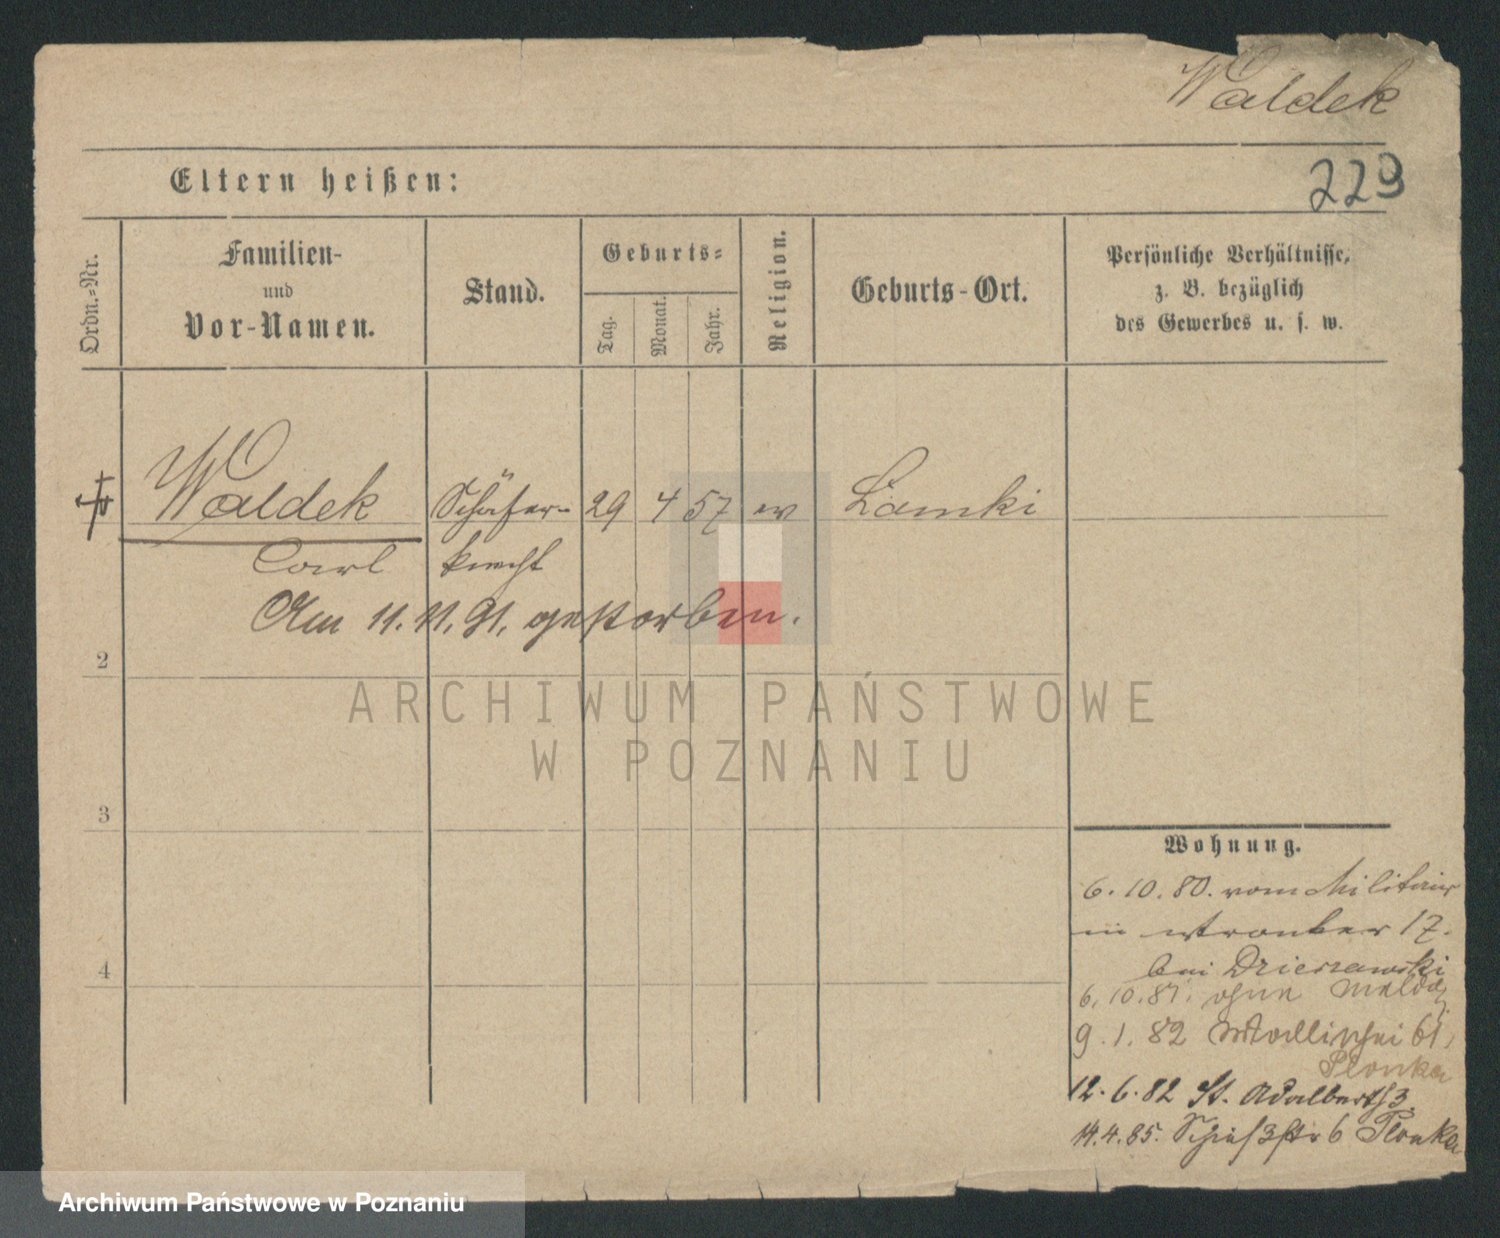 Waldek
229
Eltern heißen:
Ordn.-Nr.
Familien-
und
Vor-Namen.
Stand.
Geburts-
Tag.
Monat.
Jahr.
Religion.
Geburts-Ort.
Persönliche Verhältnisse,
z. B. bezüglich
des Gewerbes u. s. w.
Waldek
Carl
Schäfer-
knecht
29 4 57
Lamki
Am 11. 11. 91. gestorben.
2
3
4
Wohnung.
6. 10. 80. vom Militair
17.
bei Dzierzawski
6. 10. 81. ohne Meldg
9. 1. 82 Wallischei 61,
Plonka
12. 6. 82 St. Adalbert 3
14. 4. 85. Schießstr 6 Plonka
ARCHIWUM PAŃSTWOWE
W POZNANIU
Archiwum Państwowe w Poznaniu